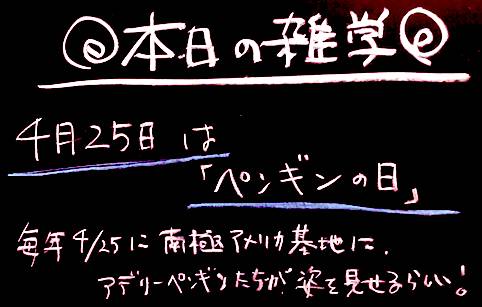 本日の雑学
4月25日は
「ペンギンの日」
毎年4/25に南極アメリカ基地に、
アデリーペンギンたちが姿を見せるらしい!